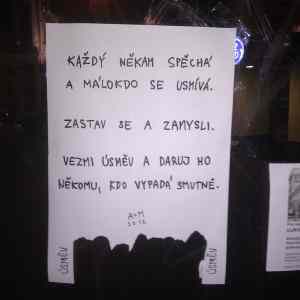 KAŽDÝ NĚKAM SPĚCHÁ
A MÁLOKDO SE USMÍVÁ.
ZASTAV SE A ZAMYSLI.
VEZMI ÚSMĚV A DARUJ HO
NĚKOMU, KDO VYPADÁ SMUTNĚ.
A+M
ÚSMĚV
ÚSMĚV